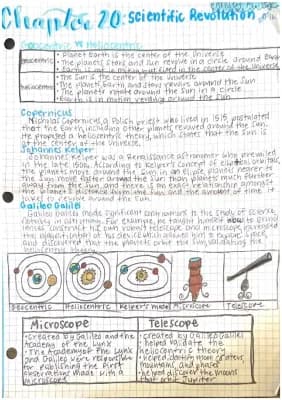 Chapter 20: Scientific Revolution
Geocentric vs Heliocentric
Geocentric
• Planet Earth is the center of the Universe
• The planets, stars and sun revolve in a circle around Earth
• Earth is not in motion but fixed in the center of the universe
heliocentric
• The Sun is the center of the Universe
• The planets, Earth and stars revolve around the Sun
• The planets rotate around the Sun in a circle
• Earth is in motion, revolving around the Sun
Copernicus
Nicolas Copernicus, a Polish priest who lived in 1515, postulated
that the Earth, including other planets, revolved around the Sun.
He proposed a heliocentric theory, which states that the Sun is
at the center of the Universe.
Johannes Kepler
Johannes Kepler was a Renaissance astronomer who prevailed
in the late 1500s. According to Kepler's concept of elliptical orbits,
the planets move around the Sun in an ellipse, planets nearer to
the Sun move faster around the Sun than planets much further
away from the Sun, and there is an exact relationship amongst
the planet's distance from the Sun and the amount of time it
takes to revolve around the Sun.
Galileo Galilei
Galileo Galilei made significant contributions to the study of science,
notably in astronomy. For example, he taught himself how to grind
lenses, construct his own robust telescope and microscope, increased
the magnification of his device which allowed him to explore space,
and discovered that the planets orbit the Sun, validating the
heliocentric theory.
Geocentric
Heliocentric
Kepler's model
Microscope
Telescope
Microscope
• Created by Galileo and the
Academy of the Lynx
• The Academy of the Lynx
and Galileo were responsible
for publishing the first
observations made with a
microscope
Telescope
• created by Galileo Galilei
• helped validate the
heliocentric theory
• helped
mountains, and phases
• helped discover the moons
that orbit Jupiter